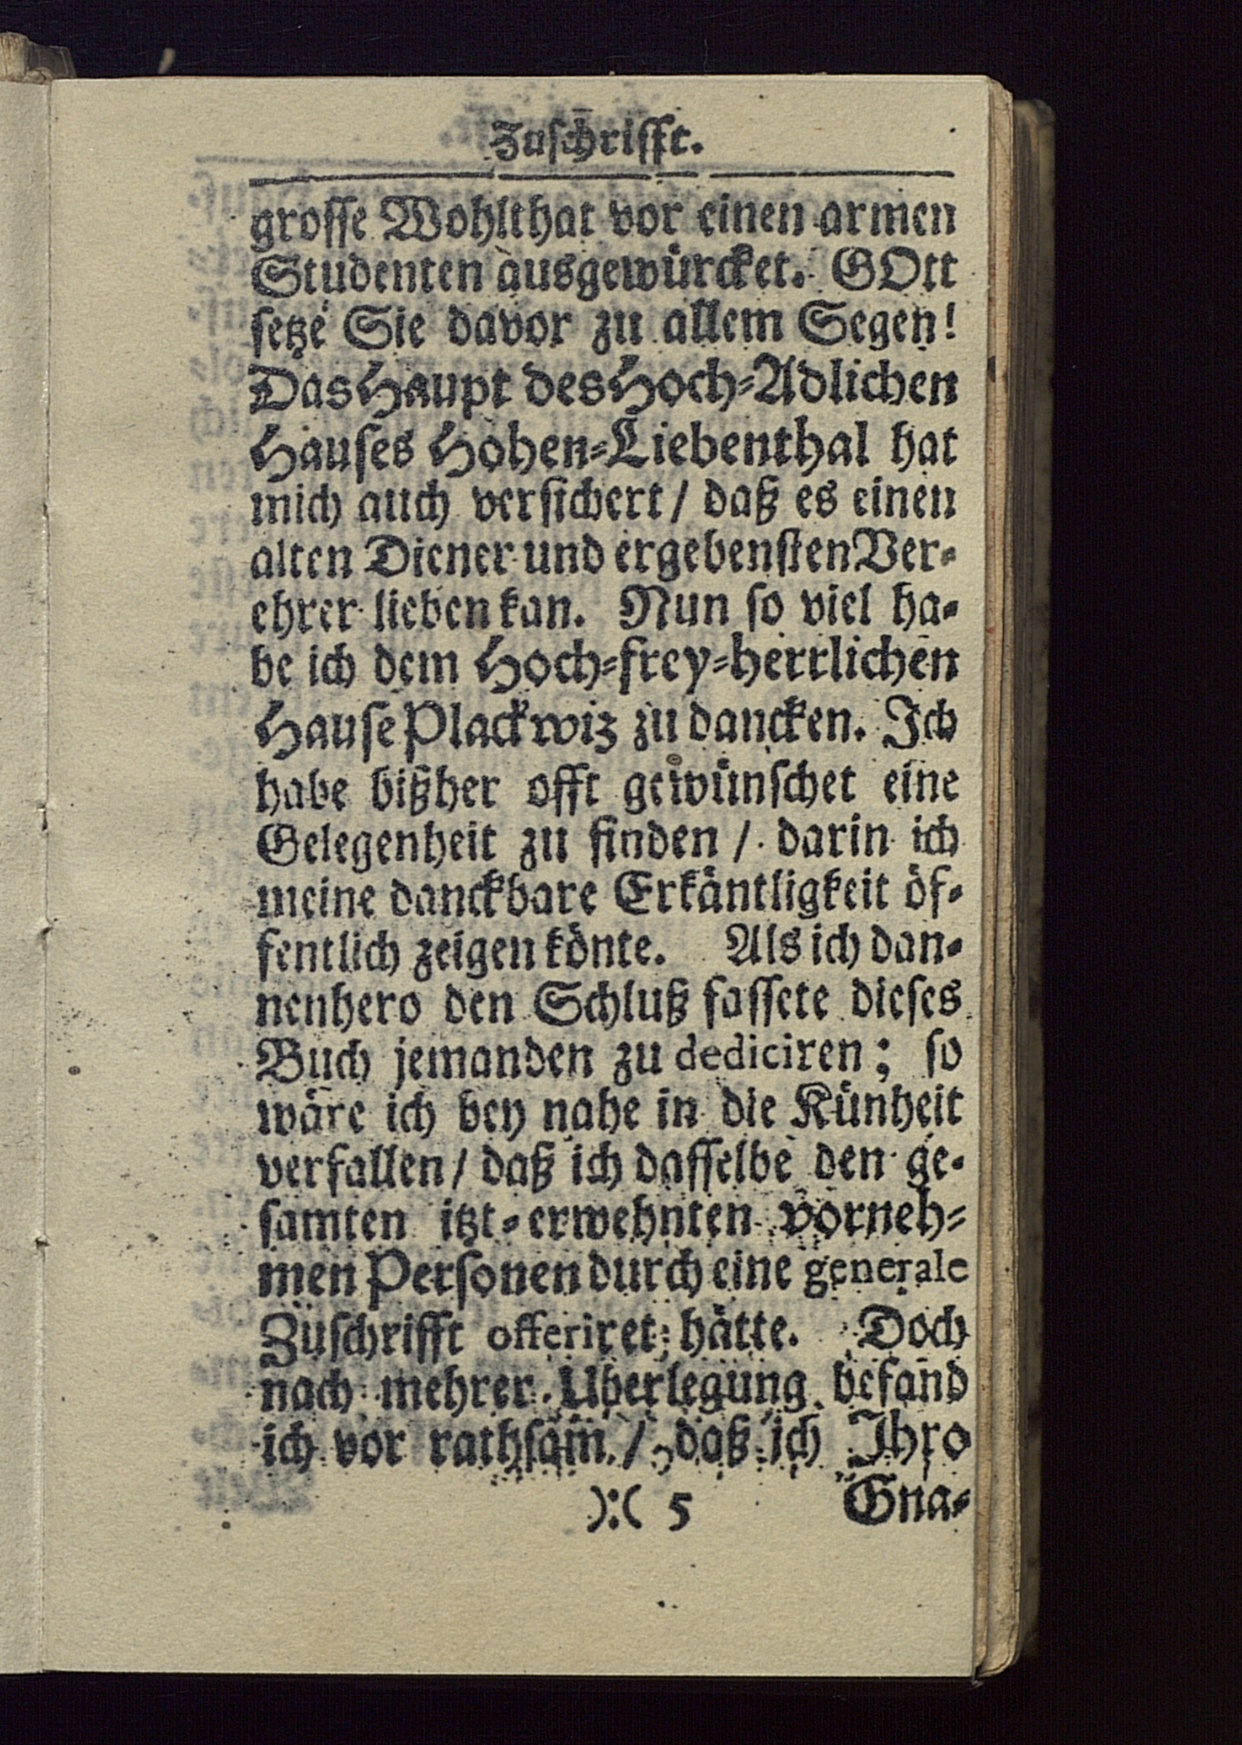 Zuschrifft.
grosse Wohlthat vor einen armen
Studenten ausgewürcket. GOtt
setze Sie davor zu allem Segen!
Das Haupt des Hoch-Adlichen
Hauses Hohen-Liebenthal hat
mich auch versichert / daß es einen
alten Diener und ergebensten Ver-
ehrer lieben kan. Nun so viel ha-
be ich dem Hoch-frey-herrlichen
Hause Plackwiz zu dancken. Ich
habe bißher offt gewünschet eine
Gelegenheit zu finden / darin ich
meine danckbare Erkäntligkeit öf-
fentlich zeigen könte. Als ich dan-
nenhero den Schluß fassete dieses
Buch jemanden zu dediciren; so
wäre ich bey nahe in die Künheit
verfallen / daß ich dasselbe den ge-
samten itzt-erwehnten vorneh-
men Personen durch eine generale
Zuschrifft offeriret hätte. Doch
nach mehrer Uberlegung befand
ich vor rathsam / daß ich Ihro
):( 5 Gna-